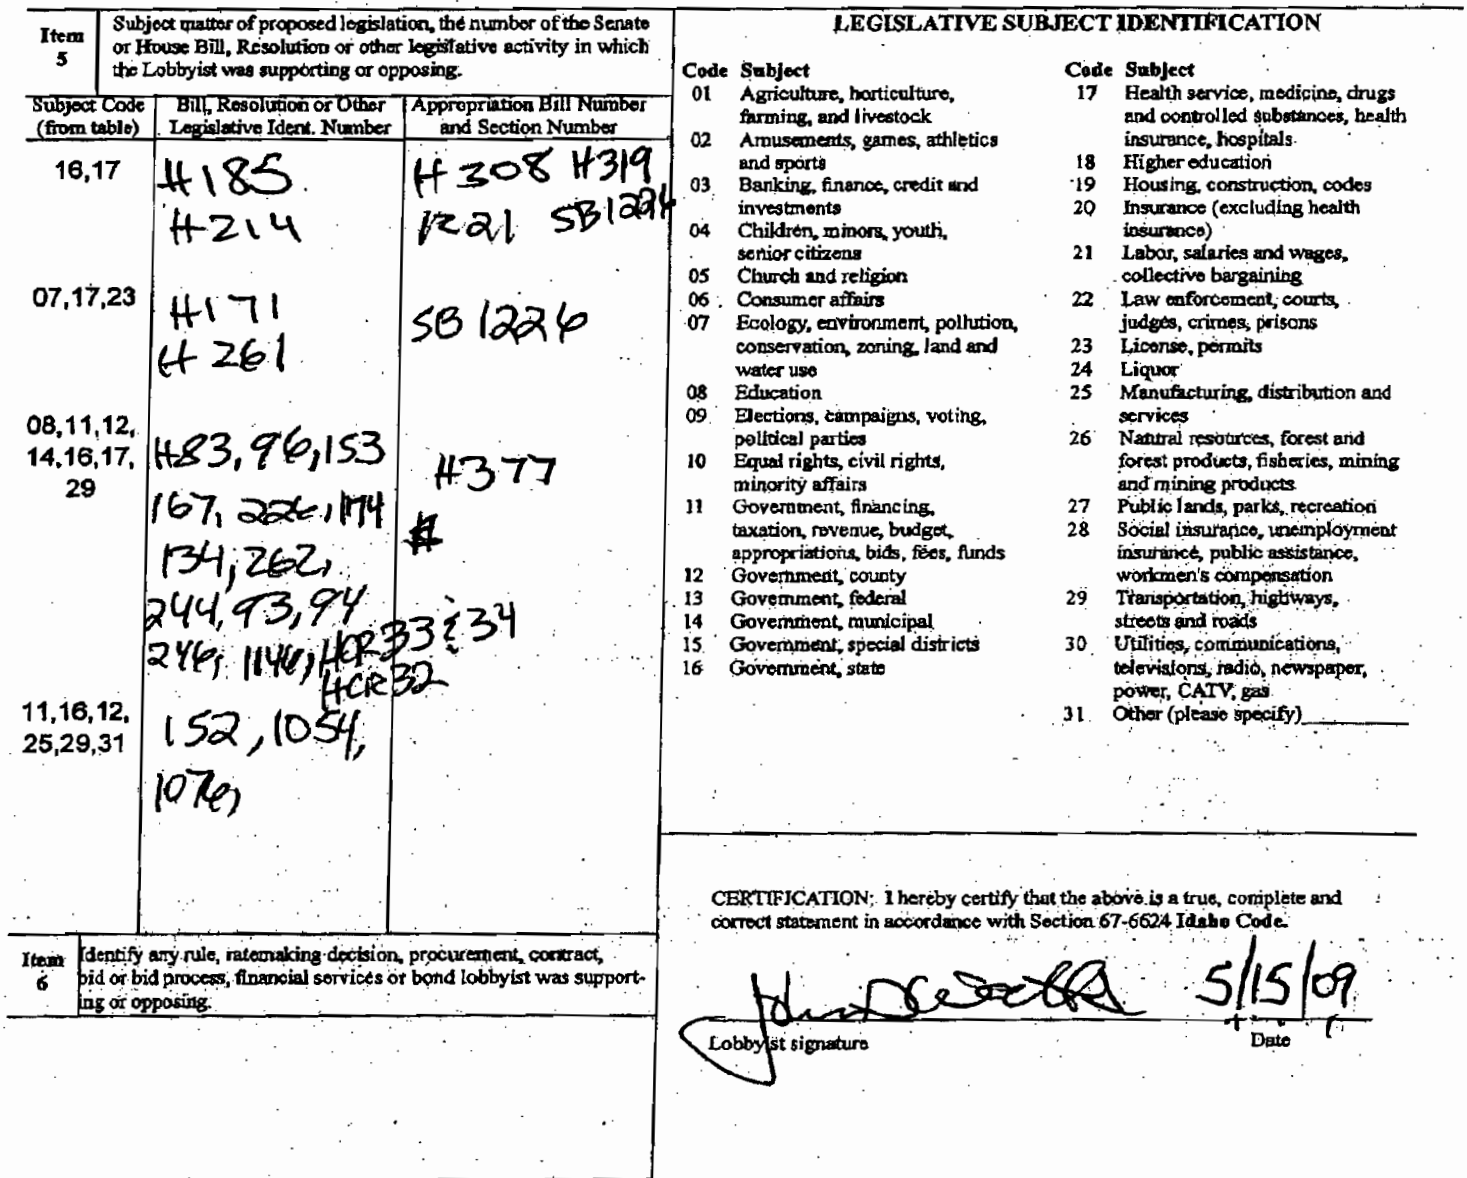 Item 5
Subject matter of proposed legislation, the number of the Senate
or House Bill, Resolution or other legislative activity in which
the Lobbyist was supporting or opposing.
Subject Code (from table)
Bill, Resolution or Other Legislative Ident. Number
Appropriation Bill Number and Section Number
16,17
H185
H308 H319
H214
SB1224
07,17,23
H171
SB 1226
H 261
08,11,12,
14,16,17,
29
H83, 96, 153
H377
167, 226, 174
134, 262,
244, 93, 94
246, 1146, HCR33 & 34
HCR32
11,16,12,
25,29,31
152, 1054,
1076,
Item 6
Identify any rule, ratemaking decision, procurement, contract,
bid or bid process, financial services or bond lobbyist was support-
ing or opposing.
LEGISLATIVE SUBJECT IDENTIFICATION
Code Subject
01 Agriculture, horticulture,
farming, and livestock
02 Amusements, games, athletics
and sports
03 Banking, finance, credit and
investments
04 Children, minors, youth,
senior citizens
05 Church and religion
06 Consumer affairs
07 Ecology, environment, pollution,
conservation, zoning, land and
water use
08 Education
09 Elections, campaigns, voting,
political parties
10 Equal rights, civil rights,
minority affairs
11 Government, financing,
taxation, revenue, budget,
appropriations, bids, fees, funds
12 Government, county
13 Government, federal
14 Government, municipal
15 Government, special districts
16 Government, state
Code Subject
17 Health service, medicine, drugs
and controlled substances, health
insurance, hospitals
18 Higher education
19 Housing, construction, codes
20 Insurance (excluding health
insurance)
21 Labor, salaries and wages,
collective bargaining
22 Law enforcement, courts,
judges, crimes, prisons
23 License, permits
24 Liquor
25 Manufacturing, distribution and
services
26 Natural resources, forest and
forest products, fisheries, mining
and mining products
27 Public lands, parks, recreation
28 Social insurance, unemployment
insurance, public assistance,
workmen's compensation
29 Transportation, highways,
streets and roads
30 Utilities, communications,
televisions, radio, newspaper,
power, CATV, gas
31 Other (please specify)
CERTIFICATION: I hereby certify that the above is a true, complete and
correct statement in accordance with Section 67-6624 Idaho Code.
5/15/09
Lobbyist signature
Date